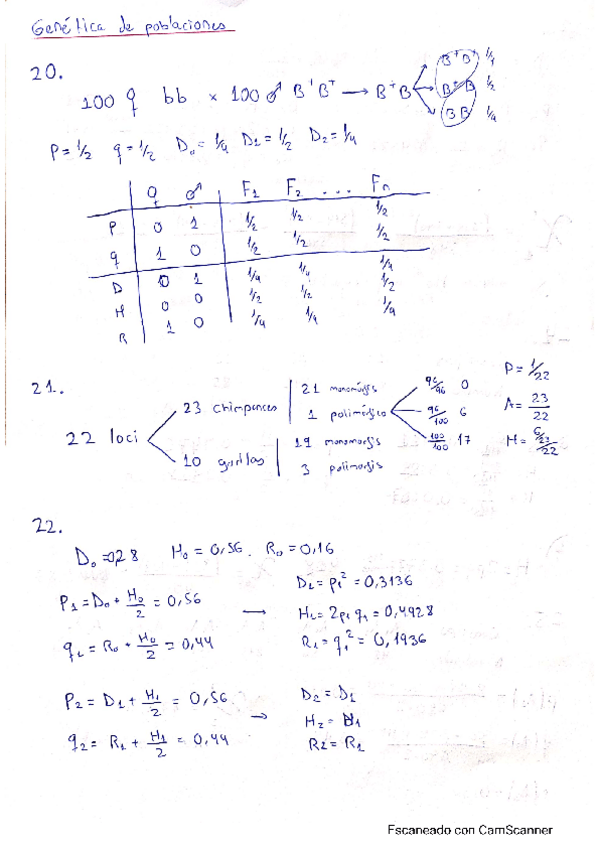 Genética de poblaciones
20.
100 ♀ bb × 100 ♂ B⁺B⁺ → B⁺B
B⁺B⁺ 1/4
B⁺B 1/2
BB 1/4
P = 1/2 q = 1/2 D₀ = 1/4 D₁ = 1/2 D₂ = 1/4
♀ ♂ F₁ F₂ ... Fn
P 0 1 1/2 1/2 1/2
q 1 0 1/2 1/2 1/2
D 0 1 1/4 1/4 1/4
H 0 0 1/2 1/2 1/2
R 1 0 1/4 1/4 1/4
21.
22 loci
23 chimpances
21 monomórfis
1 polimórfico
96/96 0
96/100 6
100/100 17
P = 1/22
A = 23/22
H = 6/23/22
10 gorilas
19 monomorfis
3 polimorfis
22.
D₀ = 0,28 H₀ = 0,56. R₀ = 0,16
P₁ = D₀ + H₀/2 = 0,56 → D₁ = p₁² = 0,3136
H₁ = 2p₁q₁ = 0,4928
q₁ = R₀ + H₀/2 = 0,44 R₁ = q₁² = 0,1936
P₂ = D₁ + H₁/2 = 0,56 → D₂ = D₁
H₂ = H₁
q₂ = R₁ + H₁/2 = 0,44 R₂ = R₁
Escaneado con CamScanner